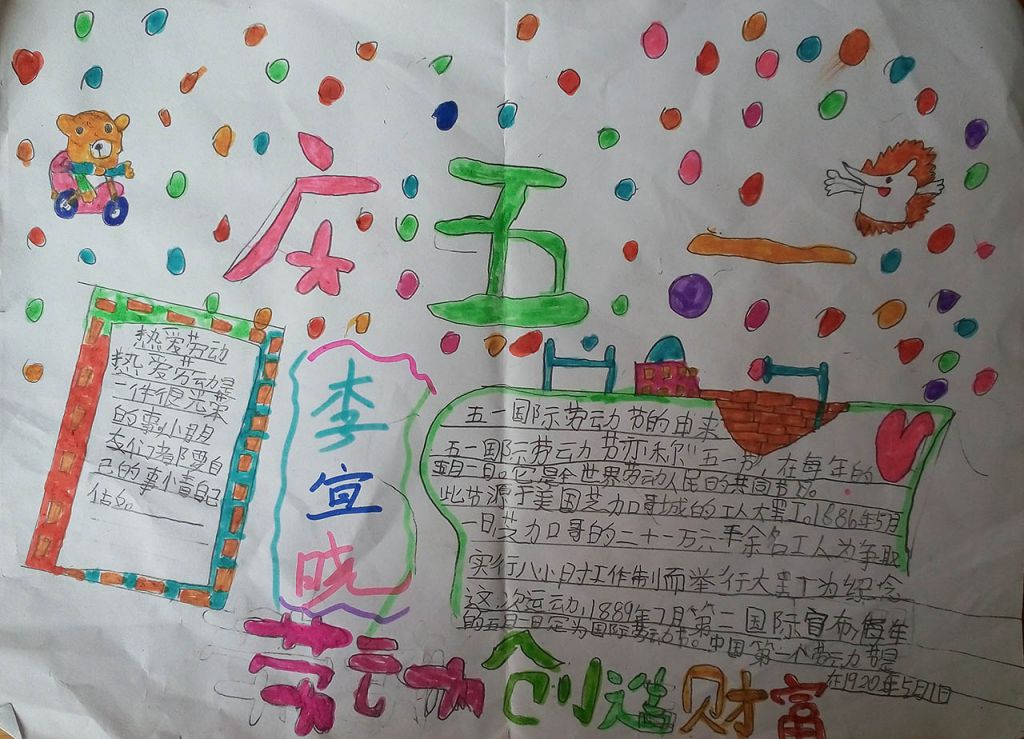 庆五一
热爱劳动
热爱劳动是
一件很光荣
的事小朋
友们都要自
己的事小青自己
估的。
李宜晓
五一国际劳动节的由来
五一国际劳动节亦称"五一节，在每年的
五月一日。它是全世界劳动人民的共同节日。
此节源于美国芝加哥城的工人大罢工。1886年5月
一日芝加哥的二十一万六千余名工人为争取
实行八小时工作制而举行大罢工为纪念
这次运动，1889年7月第二国际宣布每年
的五月一日定为国际劳动节。中国第一个劳动节是
在1920年5月1日
劳动创造财富